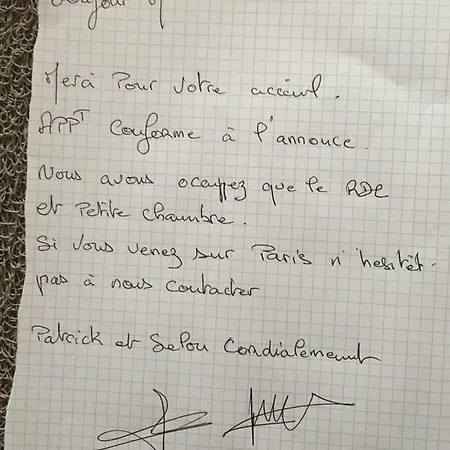 Bonjour
Merci Pour votre accéuil.
APPT Conforme à l'annouce.
Nous avous occupez que le RDC
et Petite chambre.
Si Vous venez sur Paris n'hesitêt-
pas à nous contacter
Patrick et Selou Cordialement